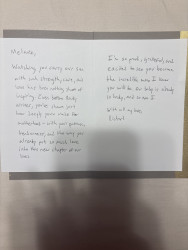 Melinda,
Watching you carry our son
with such strength, care, and
love has been nothing short of
inspiring. From before Body
arrived, you've shown you
how deeply you're made for
motherhood - with your patience,
tenderness, and the way you
already put so much love
into this new chapter of our
lives.
I'm so proud, grateful, and
excited to see you become
the incredible mama I know
you will be. Our baby is already
so lucky, and so am I.
With all my love,